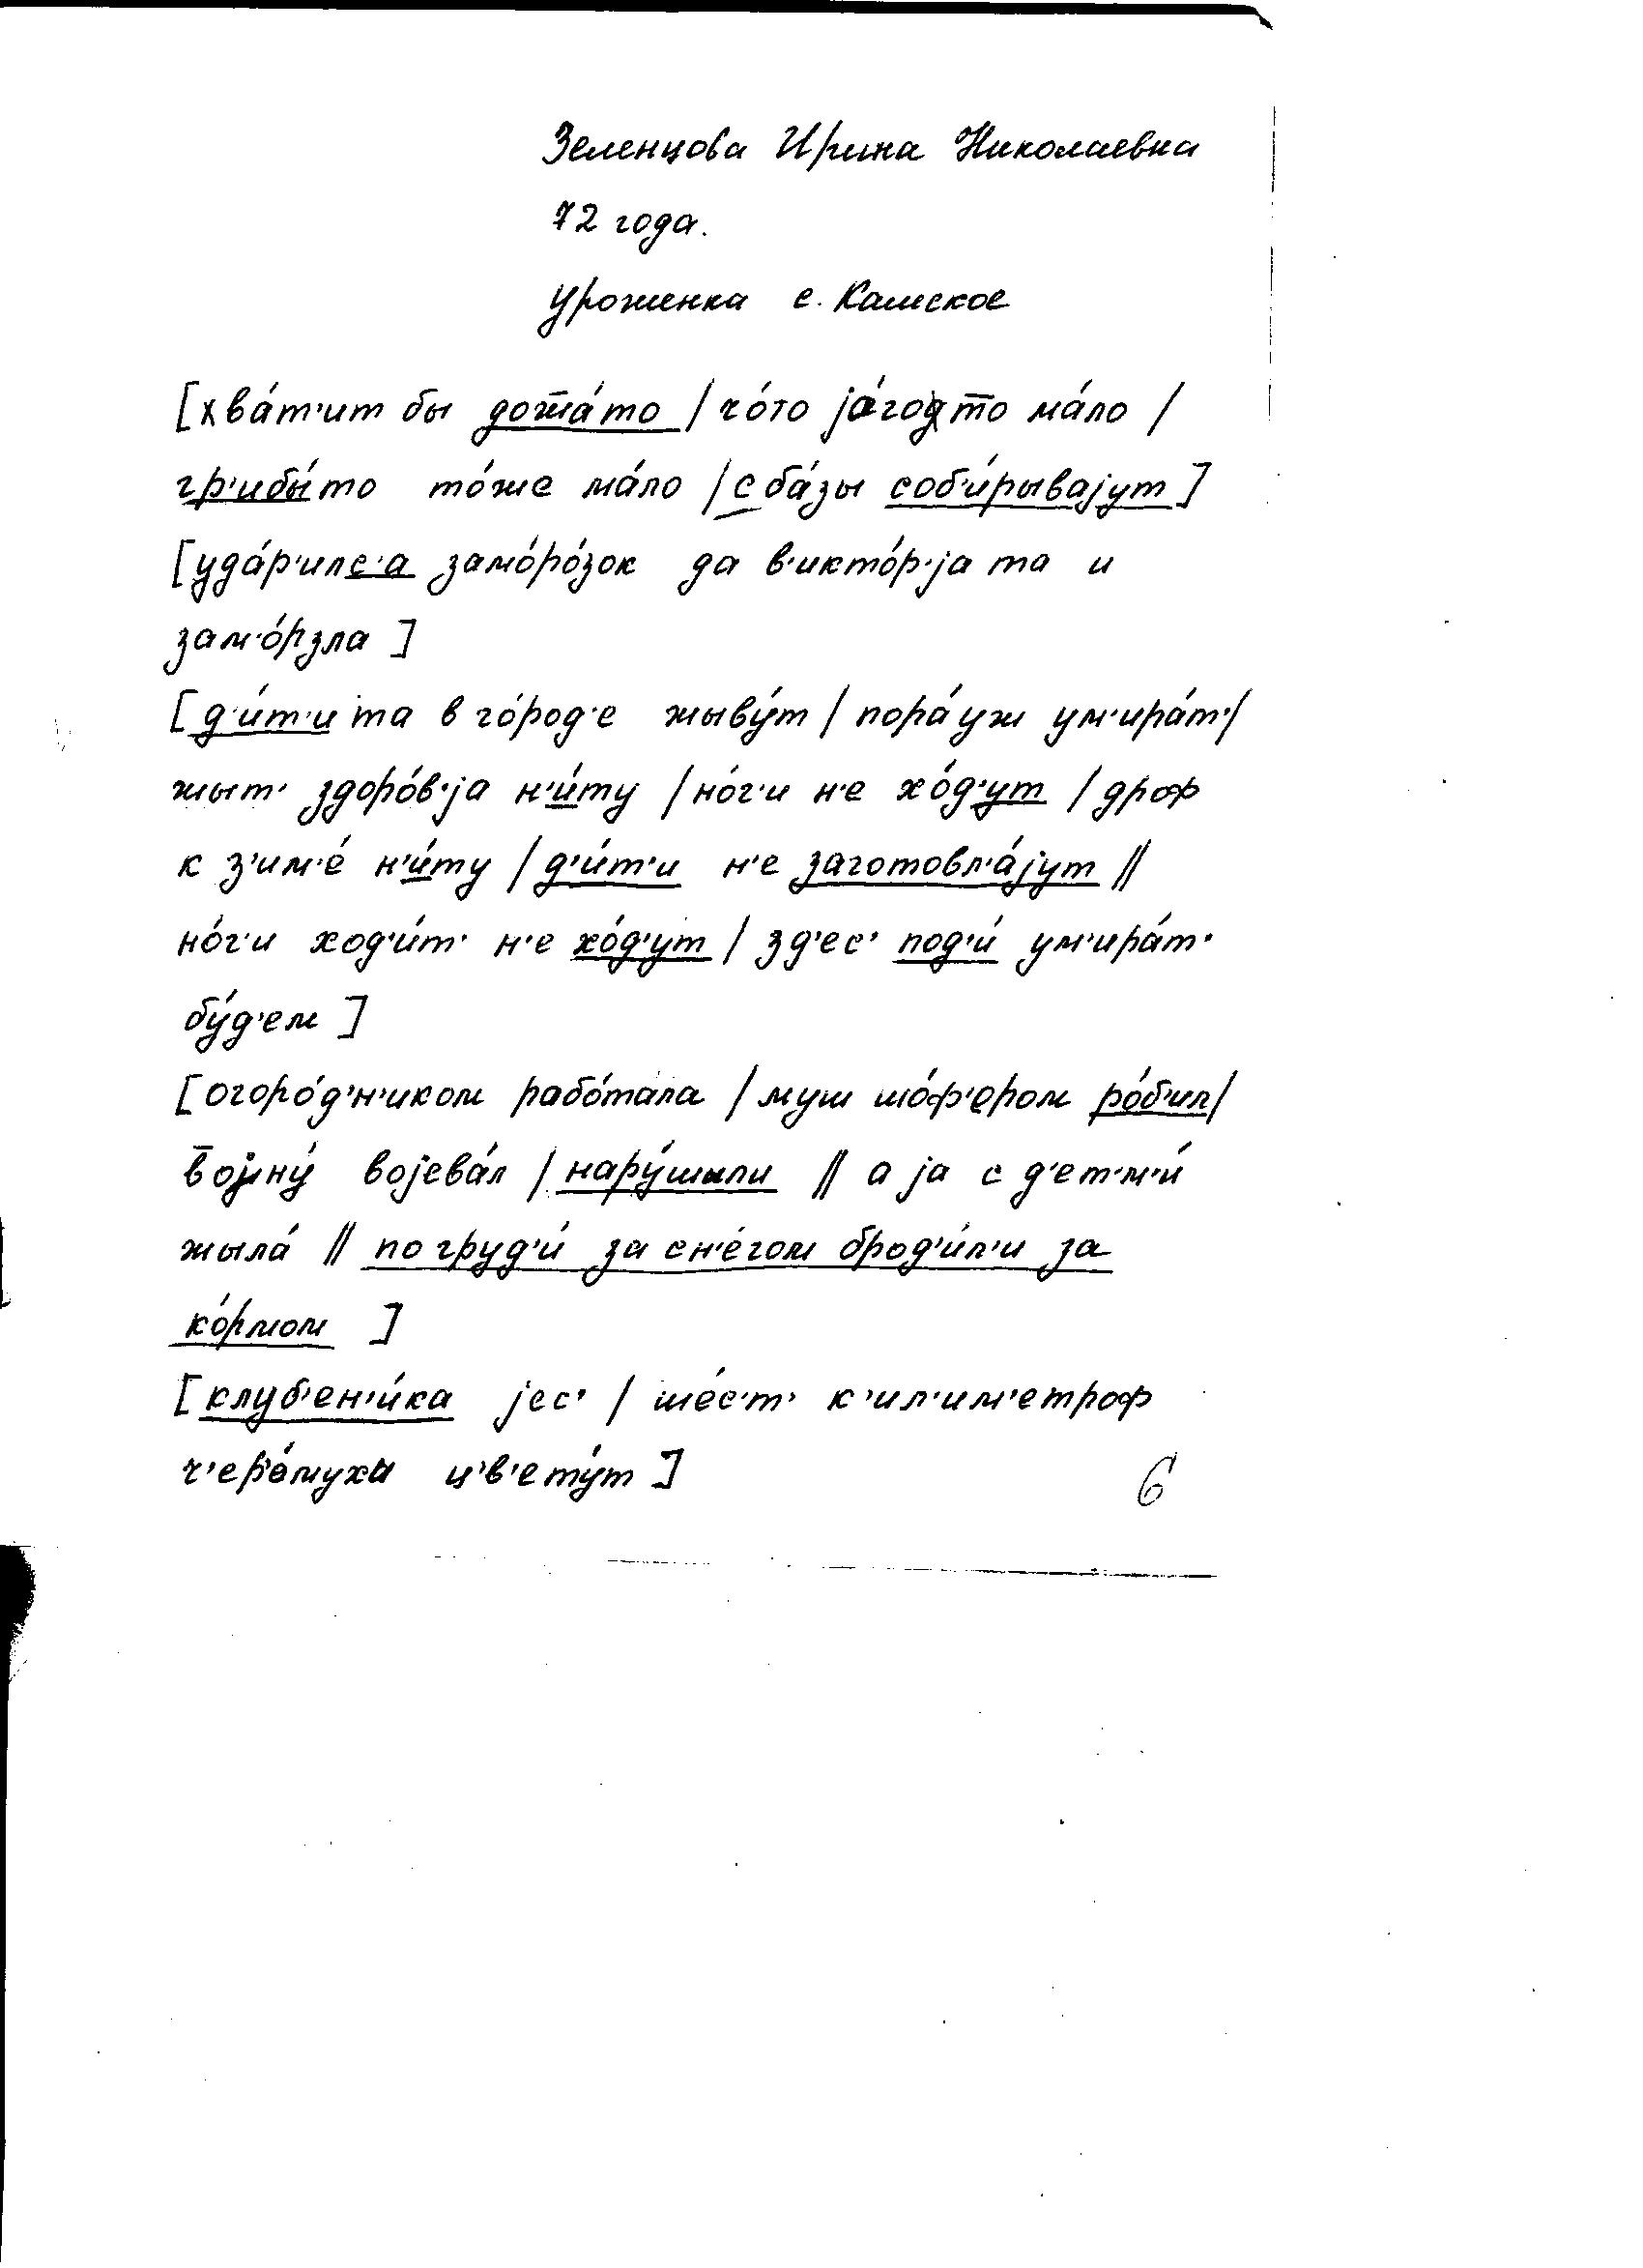 Зеленцова Ирина Николаевна
72 года.
Уроженка с. Камское
[хва́т'ит бы дожа́то / чо́то jа́годто ма́ло /
гр'ибы́то то́же ма́ло / с ба́зы соб'и́рываjут]
[уда́р'илс'а замо́ро́зок да в'икто́р'jа та и
зам'о́рзла]
[д'и́т'и та в го́род'е жыву́т / пора́ уж ум'ира́т' /
жыт' здоро́в'jа н'и́ту / но́г'и н'е хо́д'ут / дроф
к з'им'е́ н'и́ту / д'и́т'и н'е заготовл'а́jут //
но́г'и ход'и́т' н'е хо́д'ут / зд'ес' под'и́ ум'ира́т'
бу́д'ем]
[огоро́д'н'иком рабо́тала / муш шо́ф'ером ро́б'ил /
воjну́ воjева́л / нару́шыли // а jа с д'ет'м'и́
жыла́ // по груд'и́ за сн'е́гом брод'и́л'и за
ко́рмом]
[клуб'ен'и́ка jес' / ше́с'т' к'ил'им'етроф
ч'еро́муха ц'в'ету́т]
6